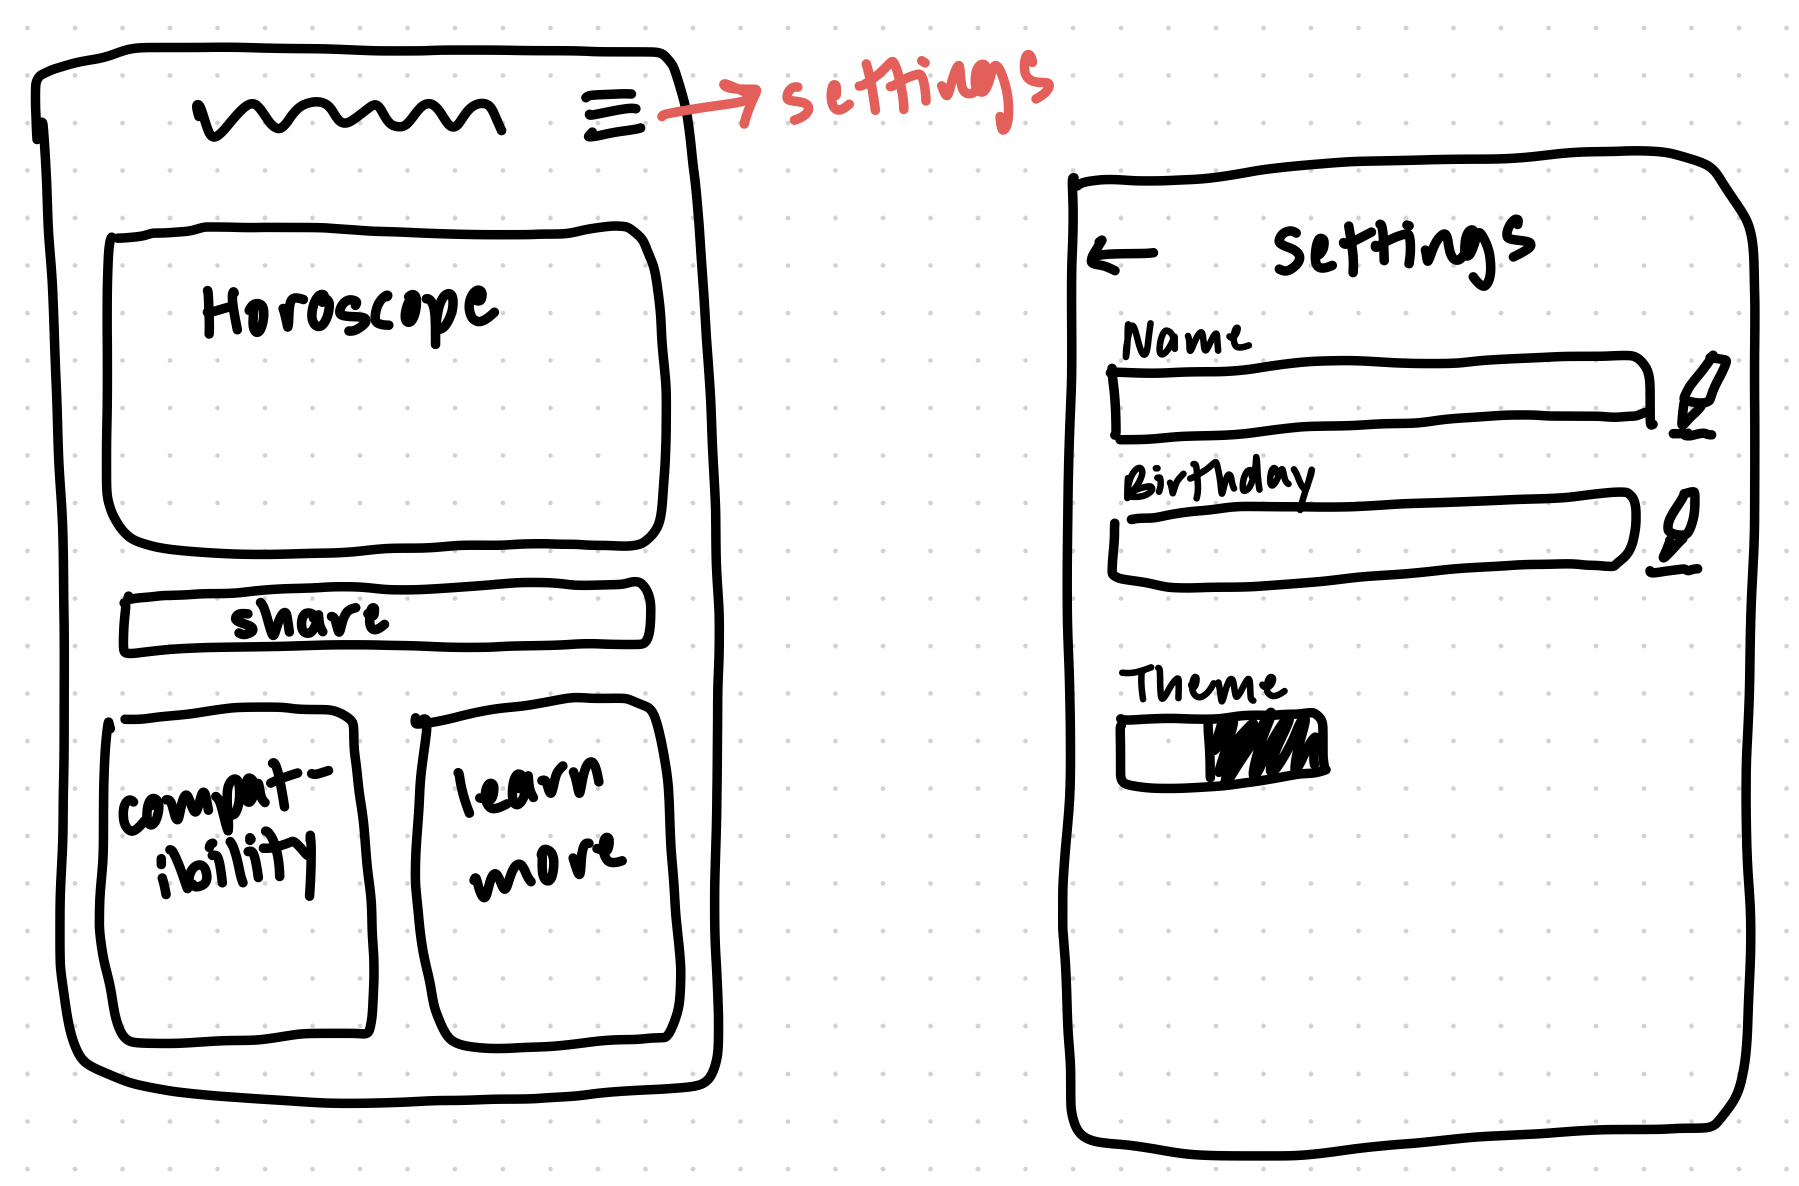 settings
Horoscope
share
compat-
ibility
learn
more
settings
Name
Birthday
Theme